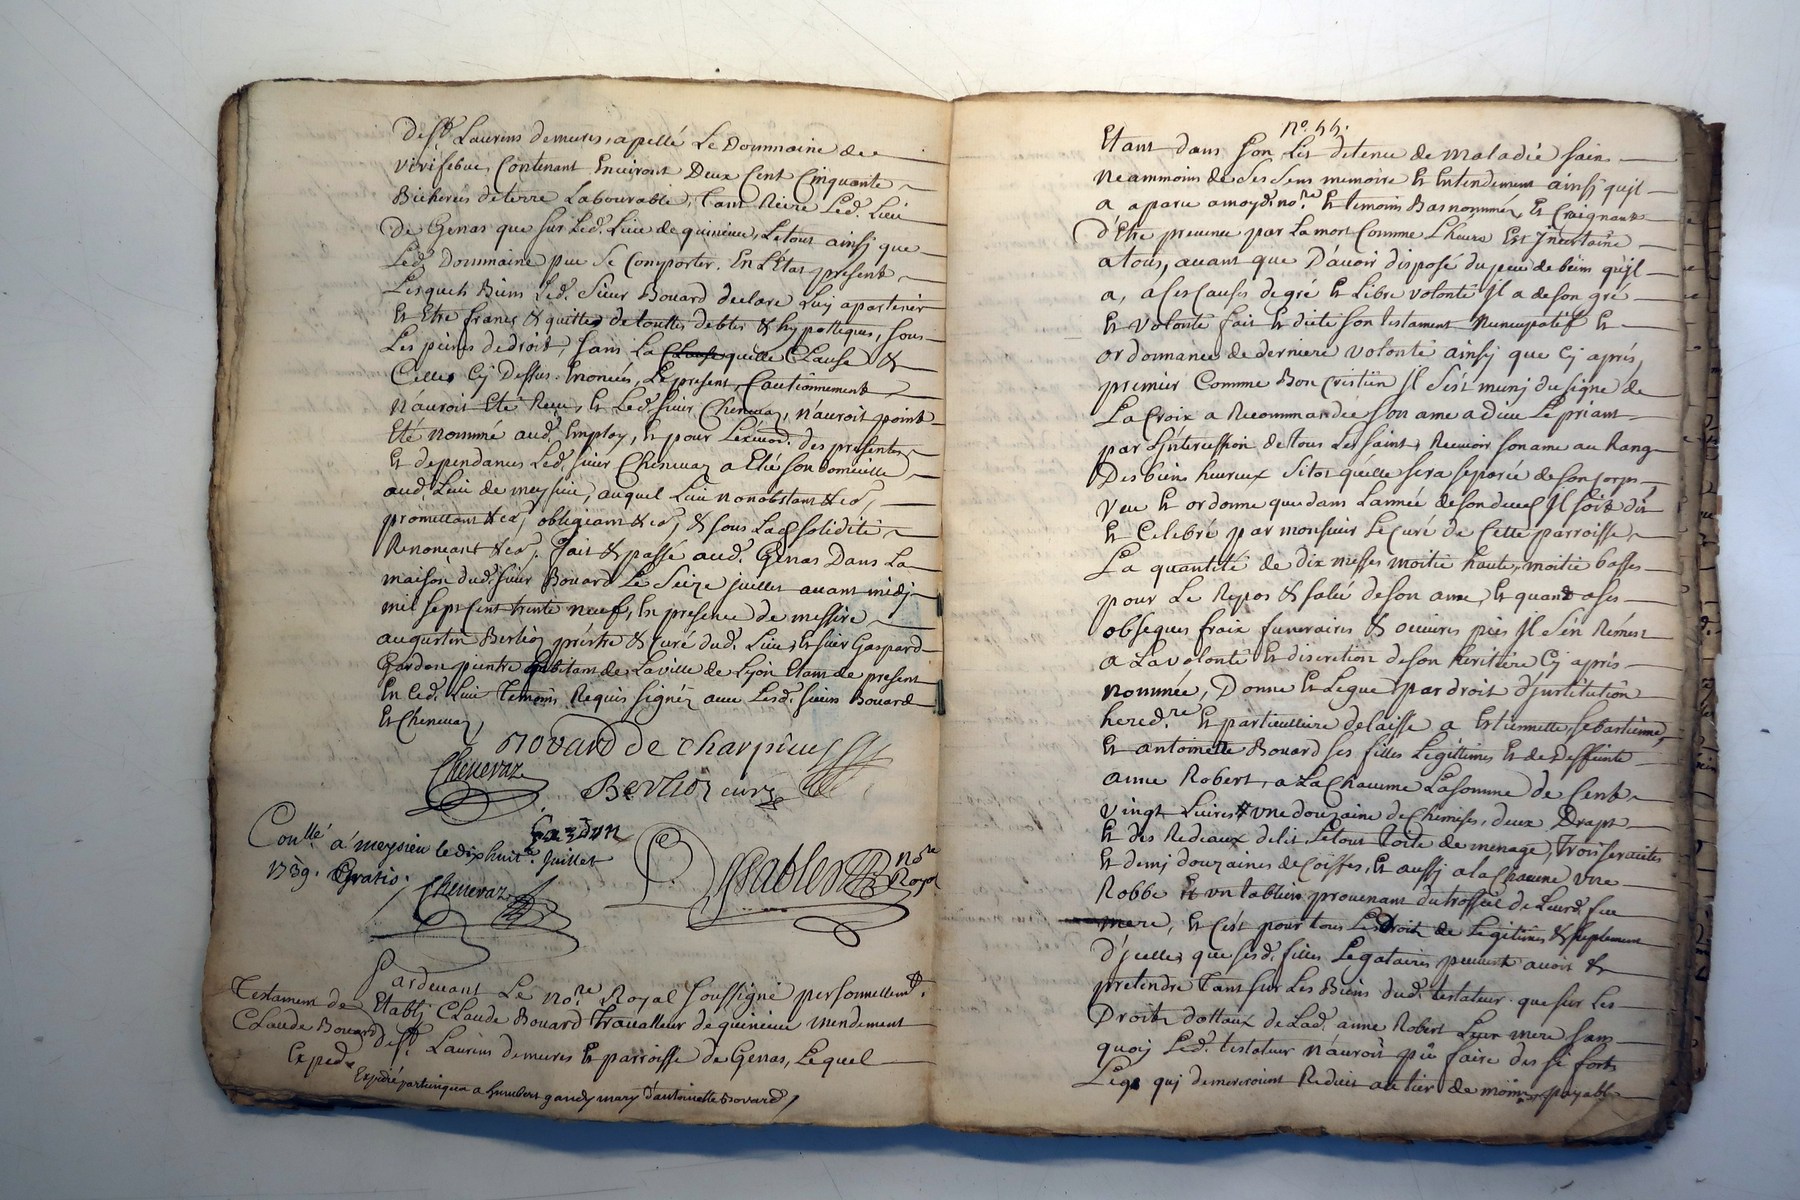 de St Laurins demures, apellé Le Dommaine de
vivifebue, Contenant Environt Deux Cent Cinquante
Bicherés de terre Labourable, Tant Riere Led. Lieu
De Genas que sur Led. Lieu de quinieue, Letout ainsÿ que
Led. Dommaine pue se Comporter. En L'Etat present
Lesquels Biens Led. Sieur Bouard declare Luÿ apartenir
Et Etre francs & quittes de touttes debtes & hypotteques, sous
Les peines de droit, sans La quelle Clause &
Celles Cÿ Dessus Enoncées, Le present Cautionnement
N'auroit Eté Receu, Et Led. sieur Chenevaz, n'auroit point
Eté nommé aud. Employ, Et pour L'exécu.on des presentes
Et dependances Led. sieur Chenevaz a Elié son domicille
aud. Lieu de meysieu, auquel Lieu nonobstant &ca,
promettant &ca, obligeant &ca, & sous Lad. solidité
Renoncant &ca. fait & passé aud. Genas Dans La
maison dud. sieur Bouard Le Seize juillet avant midÿ
mil sept Cent trente neuf, En presence de messire
augustin Berlioz prêstre & Curé dud. Lieu, Et sieur Gaspard
Gardon peintre habitant de La ville de Lÿon Etant de present
En Led. Lieu Temoins Requis signéz avec Lesd. sieurs Bouard
Et Chenevaz
Bovard de Charpieu
Chenevaz
Berlioz curé
Gardon
Con.llé a meysieu le dix huit.e Juillet
1739. Gratis.
Chenevaz
Sablen No.re Royal
Pardevant Le No.re Royal soussigné personnellem.t
Testament de Claude Bouard
Exped.
Etablÿ Claude Bouard travalleur de quinieue mendement
de St. Laurins demures Et parroisse de Genas, Lequel
Expedié partinqua a humbert gandy mary d'antoinette Bovard
No. 55.
Etant dans son Lit detenue de maladie sain
Neammoins de ses sens memoire Et Entendement ainsÿ qu'jl
a aparu a moyd. no.re Et temoins Bas nommés, Et Craignant
d'Etre prevenue par La mort Comme L'heure Est jncertaine
a tous, avant que D'avoir disposé du peu de bien qu'jl
a, a Ces Causes de gré Et Libre volonté jl a de son gré
Et volonté fait Et dicté son testament Nuncupatif Et
ordonnance de derniere volonté ainsÿ que Cÿ aprés,
premier Comme Bon Cristien Jl s'est munÿ du signe de
La Croix a Recommandée son ame a dieu Le priant
par L'jntercession de tous Les saints Recevoir son ame au Rang
Des biens heureux sitot qu'elle sera separée de son corps
Veu Et ordonne que dans L'année de son deues Jl soit dit
Et Celebré par monsieur Le Curé de Cette parroisse
La quantité de dix messes moitié haute, moitié basses
pour Le Repos & salue de son ame, Et quand a ses
obseques fraix funeraires & oeuvres pies Jl s'en Remest
a La volonté Et discretion de son heritiere Cÿ aprés
nommée, Donne Et Legue par droit d'justitution
hered.re Et particulliere delaisse a Estiennette, sebastienne,
Et antoinette Bouard ses filles Legitimes Et de Deffeinte
anne Robert, a La Chacune La somme de Cent
vingt Livres, une douzaine de Chemises, deux Draps
Et des Redeaux de lit, Le tout Toile de menage, Trois serviettes
Et demÿ douzaines de Coiffes, Et aussÿ a la Chacune une
Robbe Et un tablier provenant du trossel de Leurd. feue
mere, Et C'est pour tous Les droits de Legitimes & suplement
d'jcelles que sesd. filles Legataires peuvent avoir &
pretendre Tant sur Les Biens dud. testateur que sur Les
Droits dottaux de Lad. anne Robert Leur mere sans
quoÿ Led. testateur n'auroit pû faire des si forts
Legs quj demeureroient Reduit au tier de moins, payable